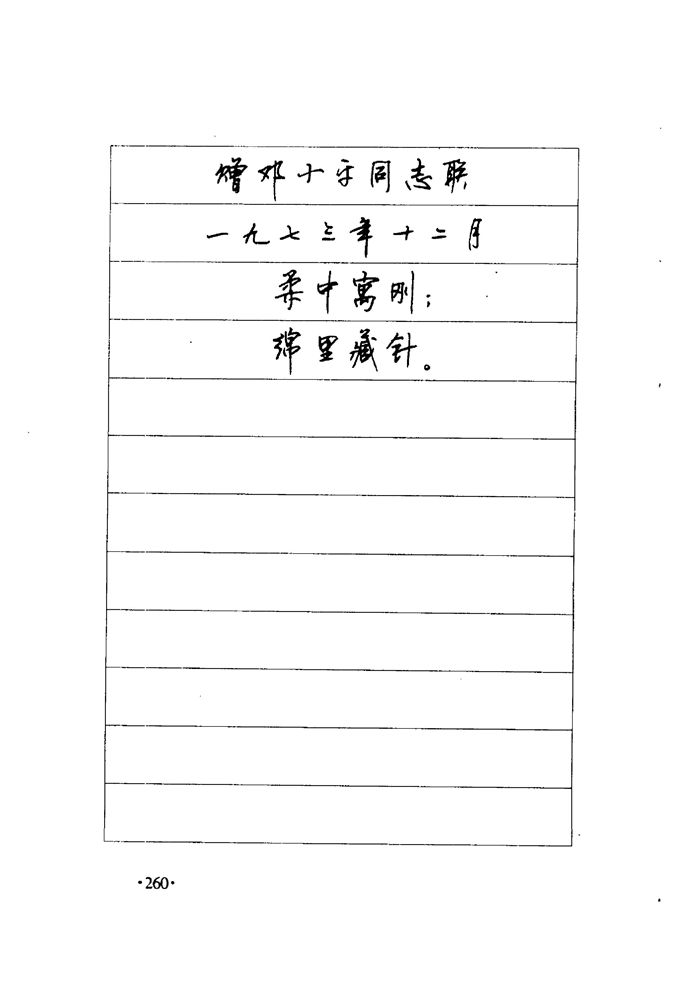 赠邓小平同志联
一九七三年十二月
柔中寓刚；
绵里藏针。
·260·